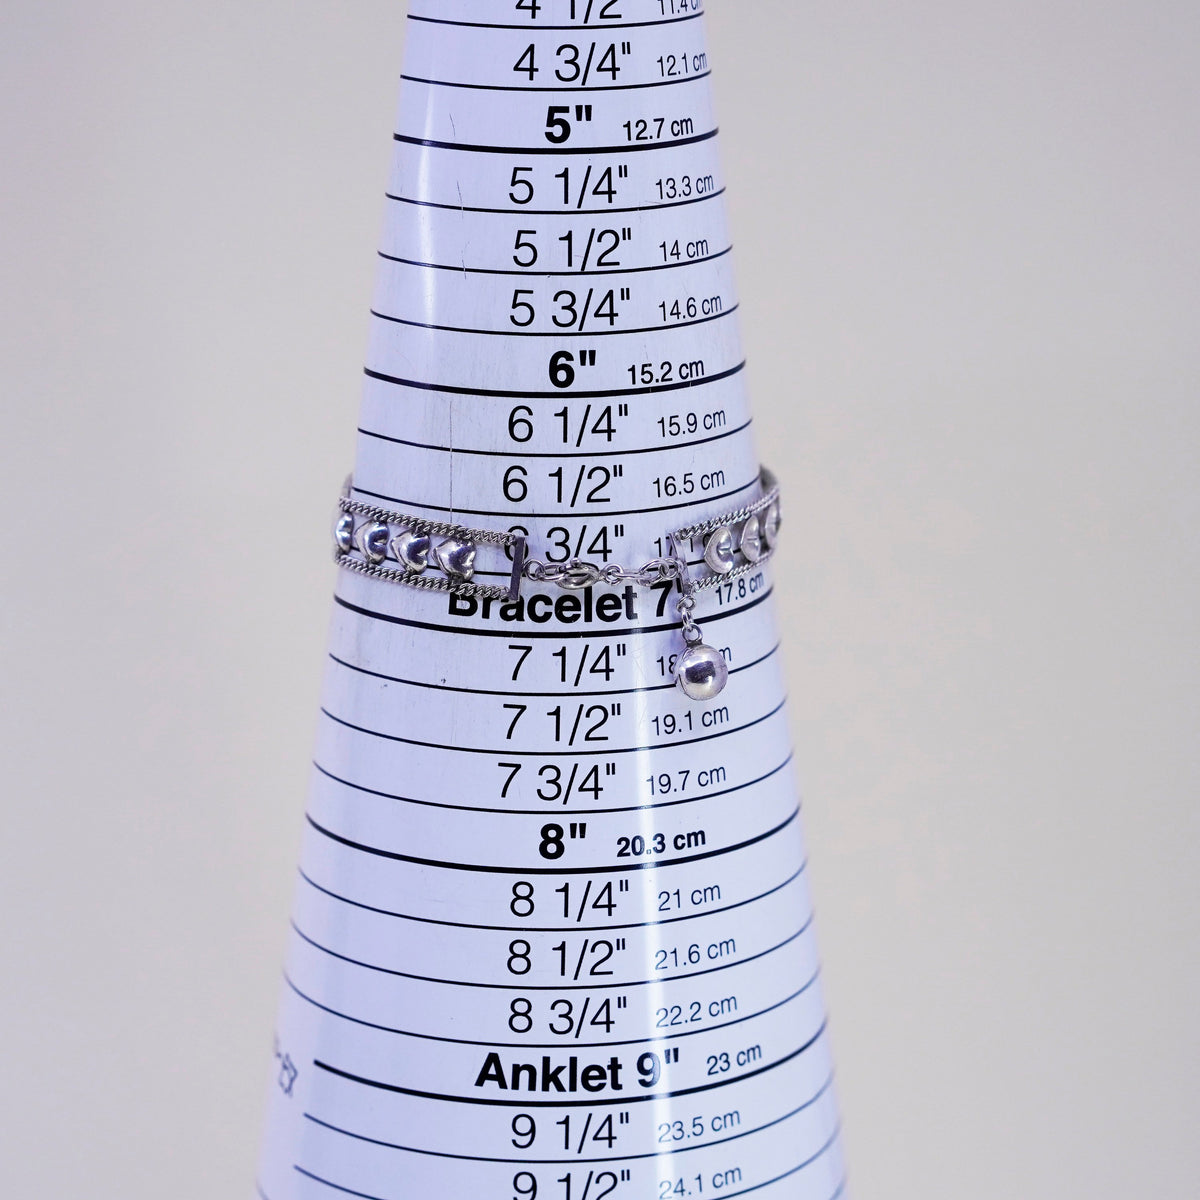 4 1/2" 11.4 cm
4 3/4" 12.1 cm
5" 12.7 cm
5 1/4" 13.3 cm
5 1/2" 14 cm
5 3/4" 14.6 cm
6" 15.2 cm
6 1/4" 15.9 cm
6 1/2" 16.5 cm
6 3/4"
Bracelet 7" 17.8 cm
7 1/4"
7 1/2" 19.1 cm
7 3/4" 19.7 cm
8" 20.3 cm
8 1/4" 21 cm
8 1/2" 21.6 cm
8 3/4" 22.2 cm
Anklet 9" 23 cm
9 1/4" 23.5 cm
9 1/2" 24.1 cm